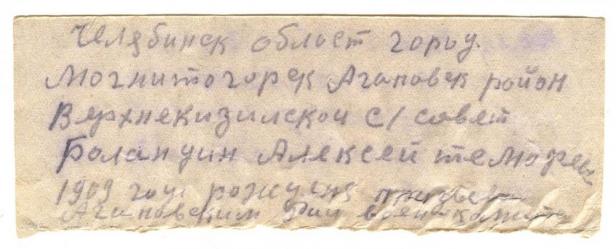 Челябинск област горъу.
Могнитогорск Агаповск район
Верхнекизилской с/совет
Боландин Алексей
1909 году рождения призван
Агаповским Рай военкомито